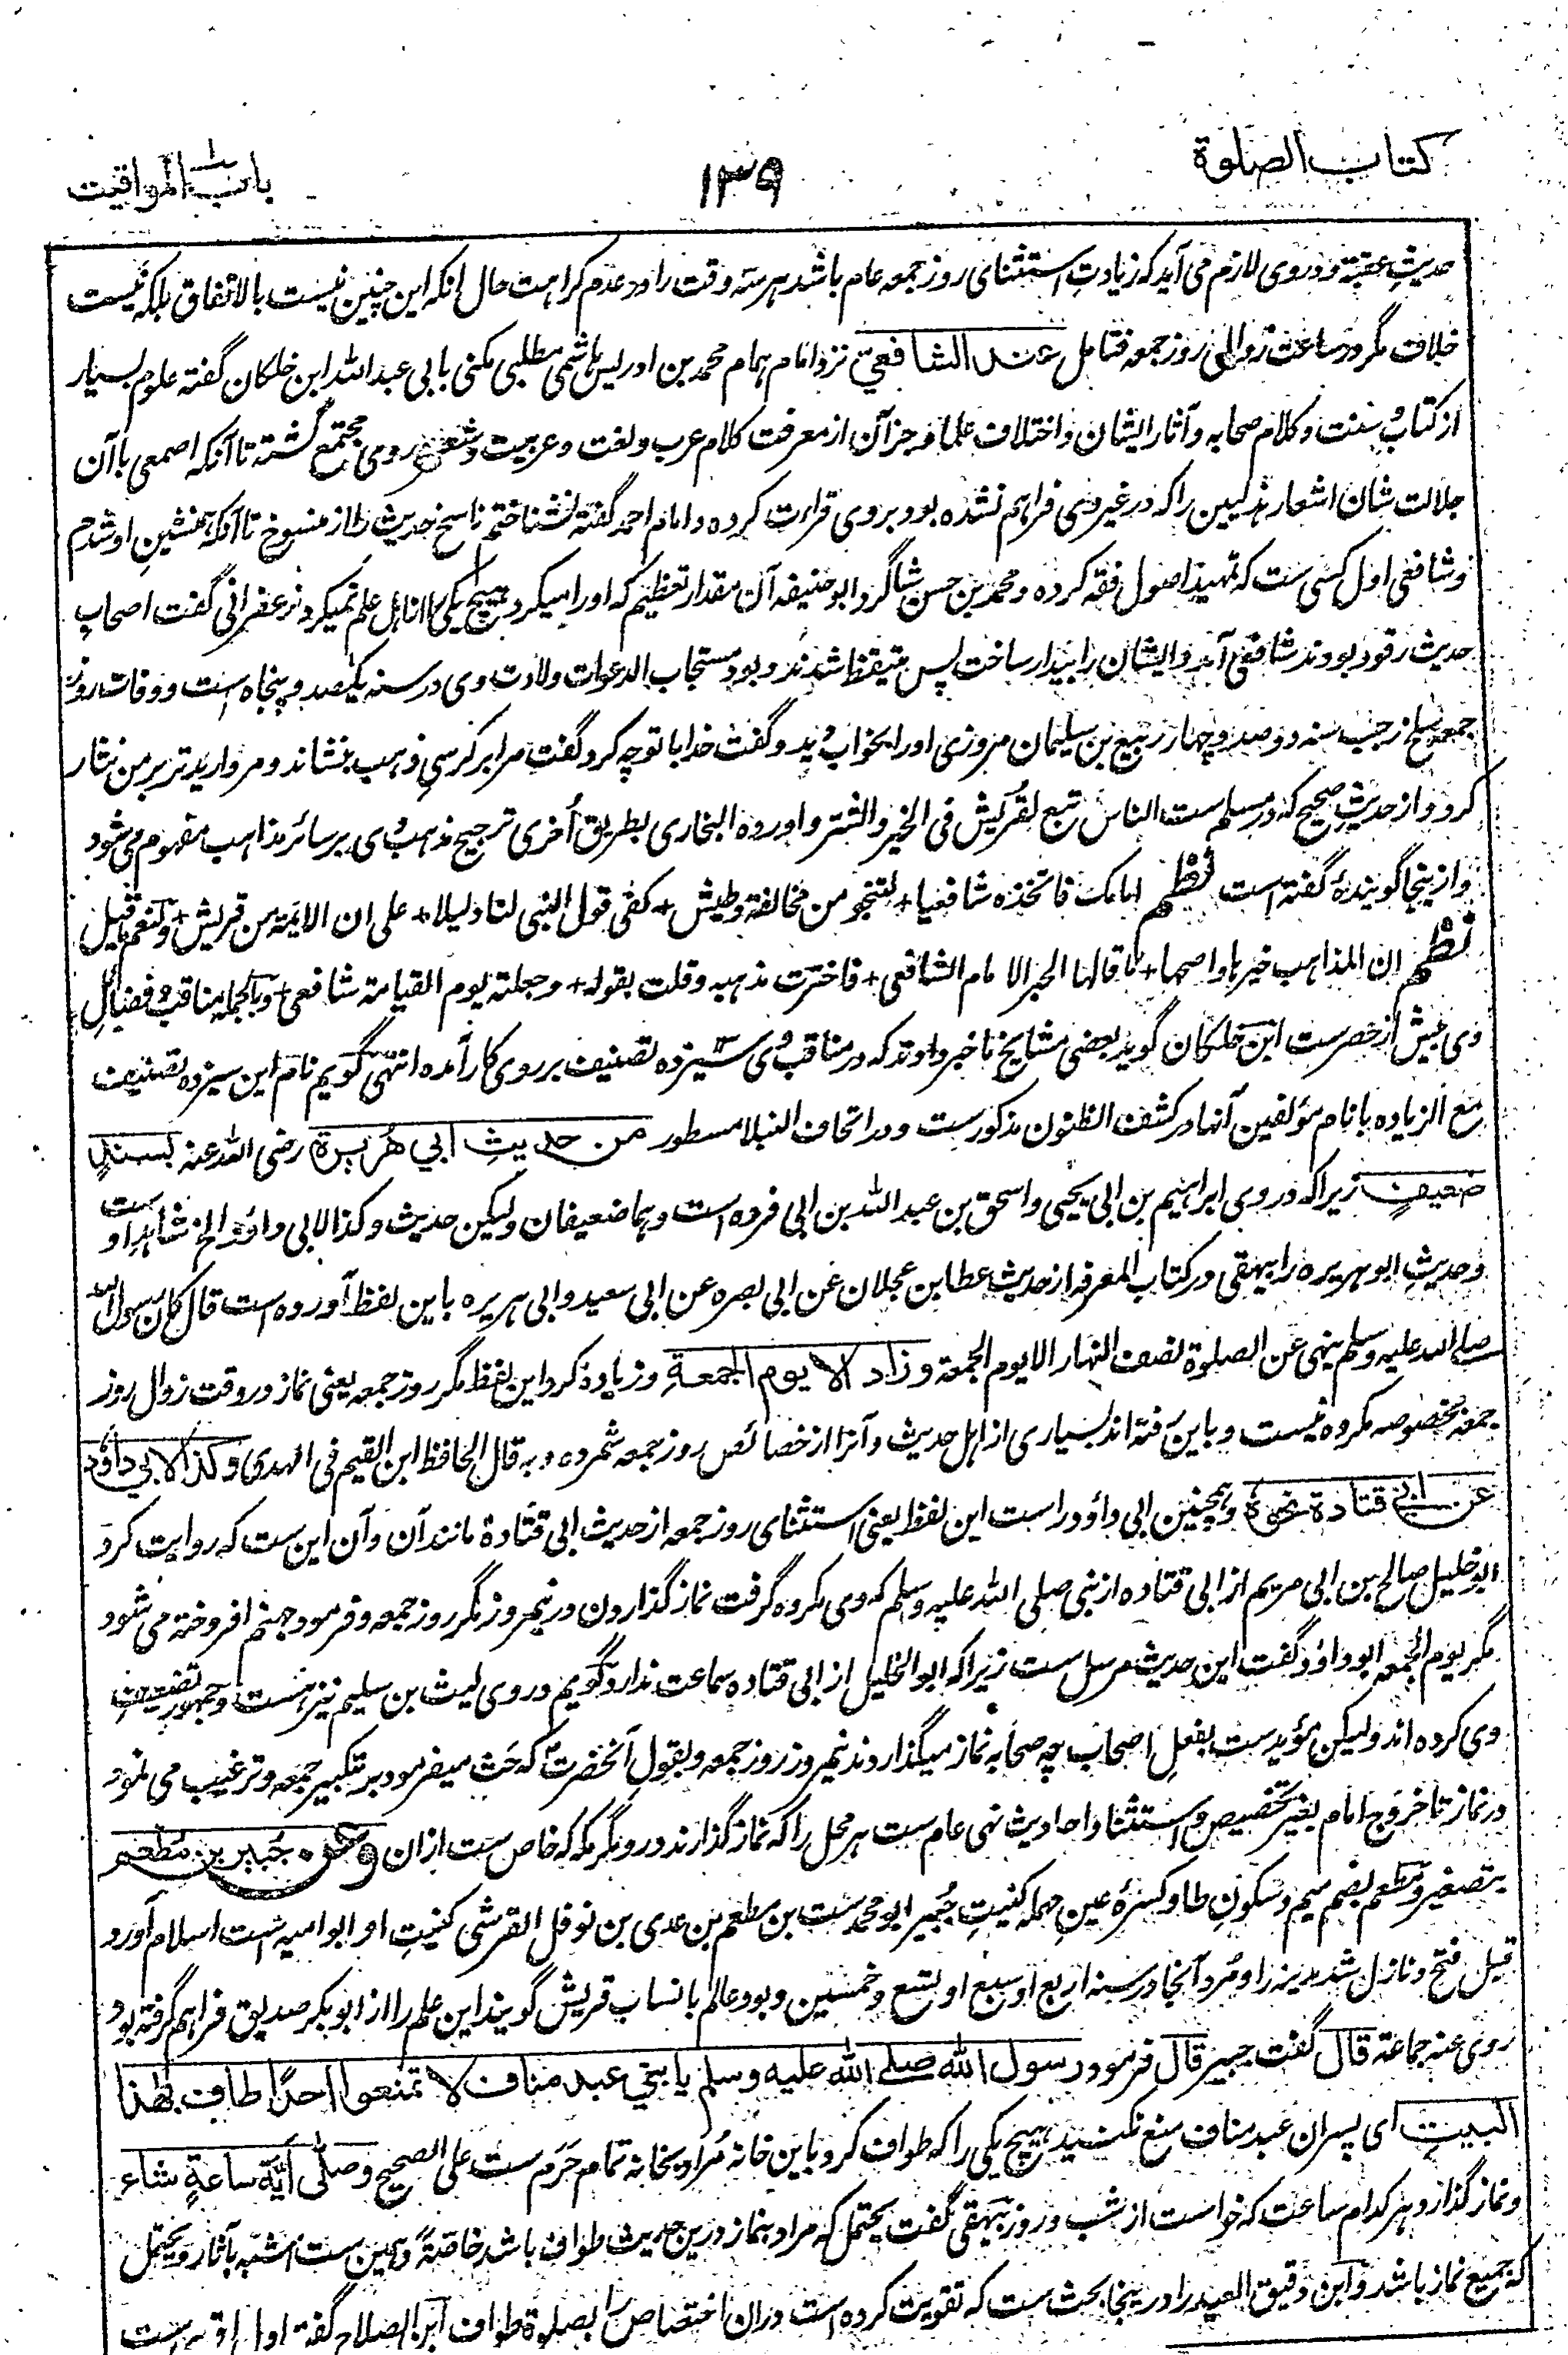 کتاب الصلوة
۱۳۹
باب المواقیت
حدیثِ عقبة و دروی لازم می آید که زیادتِ استثنای روز جمعه عام باشد هر سه وقت را در عدم کراهت حال انکه این چنین نیست بالاتفاق بلکه نیست
خلاف مگر در ساعت زوال روز جمعه فتامل عند الشافعي نزد امام همام محمد بن ادریس هاشمی مطلبی مکنی بابی عبد الله ابن خلکان گفته علوم بسیار
از کتاب و سنت و کلام صحابه و آثار ایشان و اختلاف علما و جز آن از معرفت کلام عرب و لغت و عربیت و شعر در وی مجتمع گشته تا آنکه اصمعی با آن
جلالت شان اشعار هذلیین را که در غیر وی فراهم نشده بود بر وی قراءت کرده و امام احمد گفته نشناختم ناسخ حدیث را از منسوخ تا آنکه همنشینِ او شدم
و شافعی اول کسی ست که تمهید اصول فقه کرده و محمد بن حسن شاگرد ابو حنیفه آن مقدار تعظیم که او را میکرد هیچ یکی را از اهل علم نمیکرد زعفرانی گفت اصحاب
حدیث رقود بودند شافعی آمد و ایشان را بیدار ساخت پس متیقظ شدند و بود مستجاب الدعوات ولادت وی در سنه یکصد و پنجاه است و وفات روز
جمعه سلخ رجب سنه دو صد و چهار ربیع بن سلیمان مروزی او را بخواب دید و گفت خدا با تو چه کرد گفت مرا بر کرسیِ ذهب بنشاند و مروارید تر بر من نثار
کرد و از حدیثِ صحیح که در مسلم ست الناس تبع لقُریش فی الخیر والشر و اورده البخاری بطریق اُخری ترجیح مذهب وی بر سائر مذاهب مفهوم می شود
و ازینجا گوینده گفته است نظم امامک فاتخذه شافعیا + لتنجو من مخالفة وطیش + کفی قول النبی لنا دلیلا + علی ان الائمة من قریش + ونعم قیل
نظم ان المذاهب خیرها واصحها + ما قالها الحبر الامام الشافعی + فاخترت مذهبه وقلت بقوله + وجعلته یوم القیامة شافعی + وبالجمله مناقب و فضائلِ
وی بیش از حصر ست ابن خلکان گوید بعضی مشایخ ما خبر دادند که در مناقب وی سیزده تصنیف بر روی کار آمده انتهی گویم نام این سیزده تصنیف
مع الزیاده با نام مؤلفین آنها در کشف الظنون مذکور ست و در اتحاف النبلا مسطور من حدیثِ ابي هُریرة رضی الله عنه بسندٍ
ضعیفٍ زیرا که در وی ابراهیم بن ابی یحیی و اسحق بن عبد الله بن ابی فروه است وهما ضعیفان ولیکن حدیث و کذا لابی داؤد الخ شاهدِ او ست
و حدیثِ ابو هریره را بیهقی در کتاب المعرفه از حدیث عطا بن عجلان عن ابی بصره عن ابی سعید وابی هریره باین لفظ آورده است قال کان رسول الله
صلی الله علیه وسلم ینهی عن الصلوة نصف النهار الا یوم الجمعة وزاد الا یوم الجمعةِ و زیاده کرد این لفظ مگر روز جمعه یعنی نماز در وقت زوال روز
جمعه بخصوصه مکروه نیست و باین رفته اند بسیاری از اهل حدیث و آنرا از خصائص روز جمعه شمرده و به قال الحافظ ابن القیم فی الهدی وکذا لابي داؤد
عن ابي قتادة نحوَهُ و همچنین ابی داؤد راست این لفظ یعنی استثنای روز جمعه از حدیث ابی قتادة مانند آن و آن این ست که روایت کرد
ابو خلیل صالح بن ابی مریم از ابی قتاده از نبی صلی الله علیه وسلم که وی مکروه گرفت نماز گذاردن در نیمروز مگر روز جمعه و فرمود جهنم افروخته می شود
مگر یوم الجمعه ابو داؤد گفت این حدیث مرسل ست زیرا که ابو الخلیل از ابی قتاده سماعت ندارد گویم در وی لیث بن سلیم نیز هست و جمهور تضعیفِ
وی کرده اند ولیکن مؤید ست بفعلِ اصحاب چه صحابه نماز میگذاردند نیمروز روز جمعه و بقولِ آنحضرت که حث میفرمود بر تبکیر جمعه و ترغیب می نمود
در نماز تا خروج امام بغیر تخصیص و استثنا و احادیث نهی عام ست هر محل را که نماز گذارند در و مگر مکه که خاص ست ازان وعن جُبیر بن مُطعم
بتصغیر و مطعم بضم میم و سکونِ طا و کسرۀ عینِ مهمله کنیتِ جُبیر ابو محمد ست بن مطعم بن عدی بن نوفل القرشی کنیتِ او ابو امیه است اسلام آورد
قبل فتح و نازل شد بمدینه را و مُرد آنجا در سنه اربع او سبع او تسع وخمسین و بود عالم بانساب قریش گویند این علم را از ابو بکر صدیق فراهم گرفته بود
روی عنه جماعة قال گفت جبیر قال فرمود رسول الله صلی الله علیه وسلم یا بني عبد مناف لا تمنعوا احدًا طاف بهذا
البیتِ ای پسران عبد مناف منع نکنید هیچ یکی را که طواف کرد باین خانه مُراد بخانه تمام حَرَم ست علی الصحیح وصلّی اَیّة ساعةٍ شاء
و نماز گذارد هر کدام ساعت که خواست از شب و روز بیهقی گفت یحتمل که مراد بنماز درین حدیث طواف باشد خاصةً و همین ست اشبه بآثار و یحتمل
که جمیع نماز باشد و ابن دقیق العید را درینجا بحث ست که تقویت کرده است دران اختصاص را بصلوة طواف ابن الصلاح گفته اول